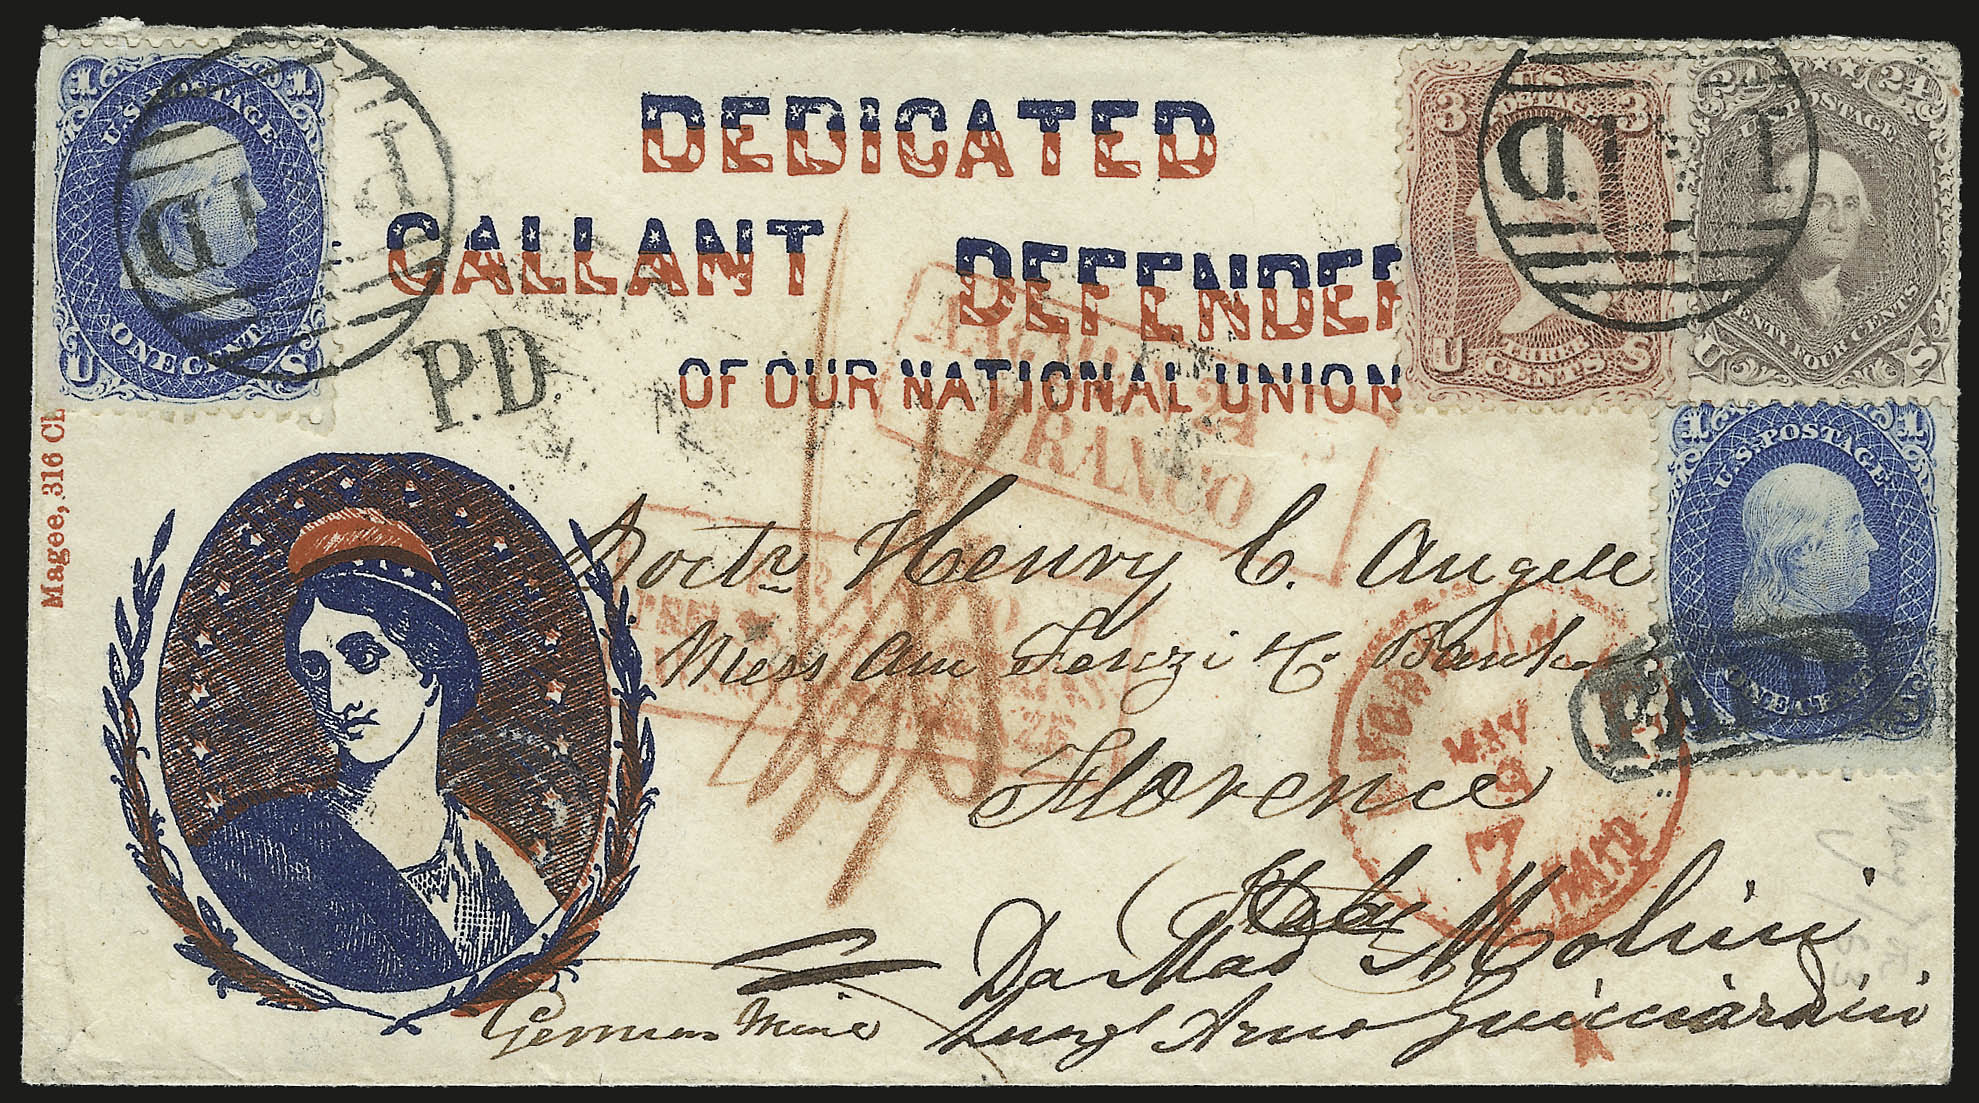 1 1
U.S. POSTAGE
ONE CENT
U S
P.D.
P.D.
DEDICATED
GALLANT DEFENDER
OF OUR NATIONAL UNION
US
3 3
POSTAGE
THREE
CENTS
U S
P.D.
24 24
U.S. POSTAGE
TWENTY FOUR CENTS
U S
1 1
U.S. POSTAGE
ONE CENT
Magee, 316 C
FRANCO
Doctr Henry C. Angell
Mess Am Fenzi & Co Bankers
Florence
Italy
MAY
9
7
PAID
25
Da Mad Molini
Lung' Arno Guicciardini
German Mail
May
63